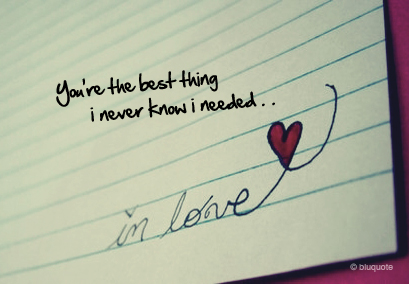 You're the best thing
i never know i needed . .
in love
© bluquote